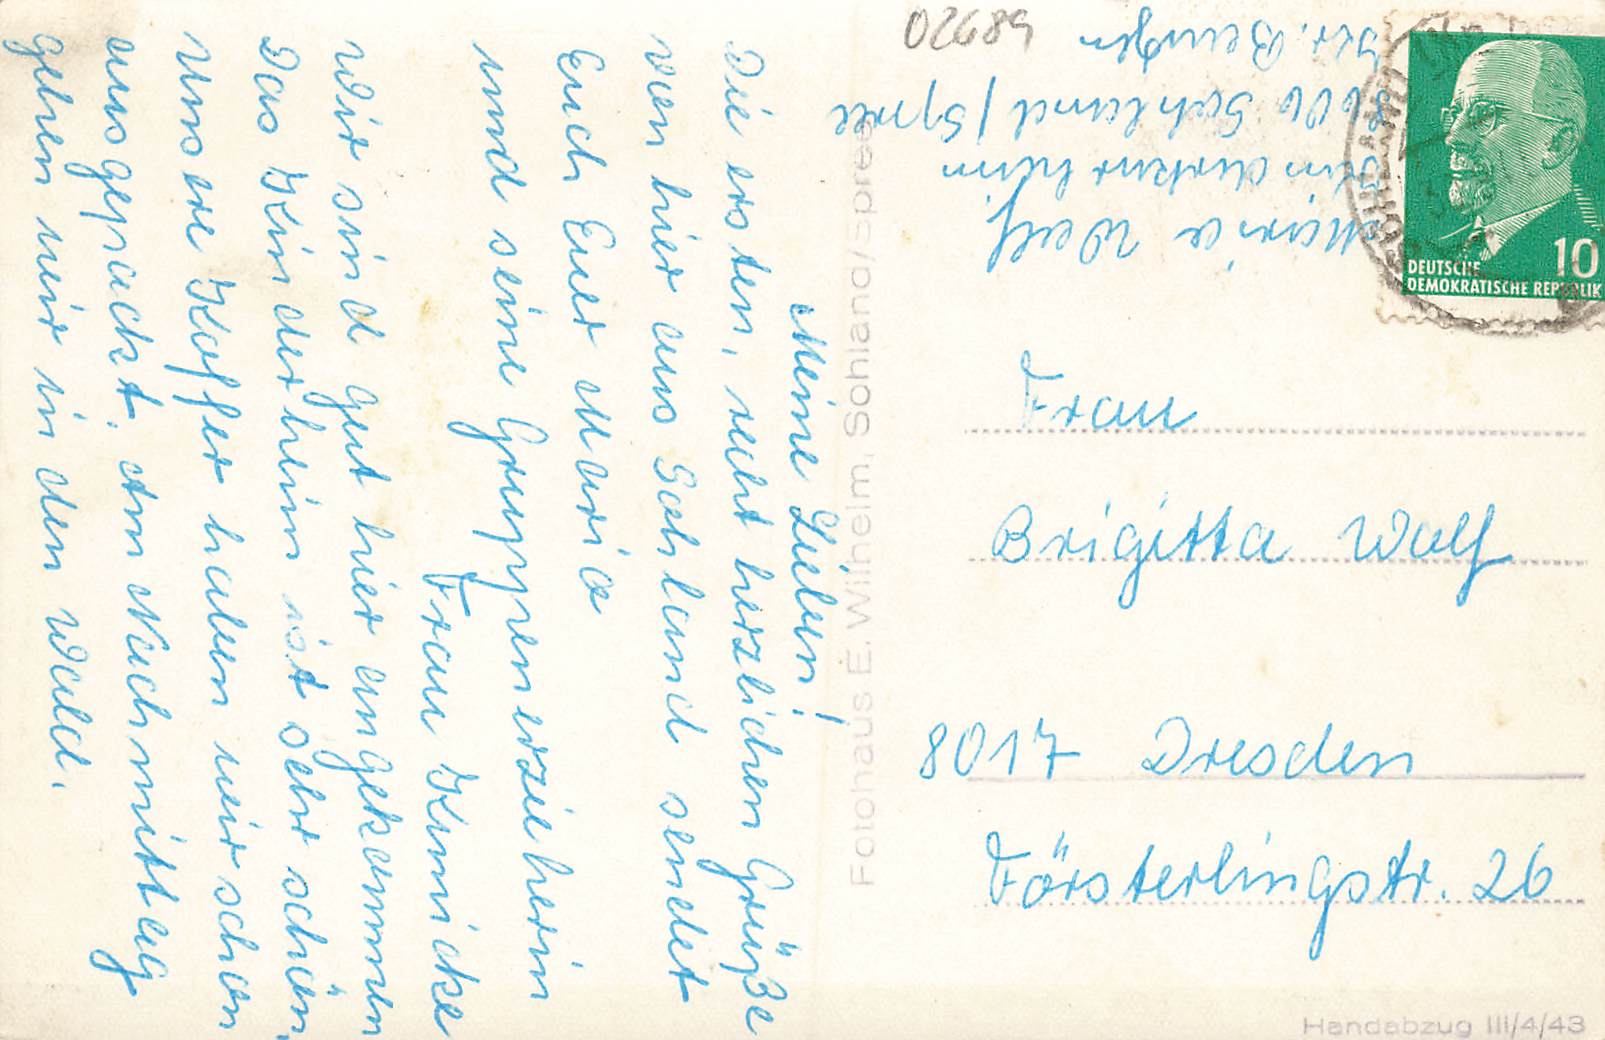 Meine Lieben!
Die ersten, recht herzlichen Grüße
von hier aus Sohland sendet
Euch Eure Maria
und seine Gruppenerzieherin
Frau Kunicke
Wir sind gut hier angekommen
Das Kinderheim ist sehr schön,
Unsere Koffer haben wir schon
ausgepackt. Am Nachmittag
gehen wir in den Wald.
Fotohaus E. Wilhelm, Sohland/Spree
02689
Maria Wolf
Kinderkurheim
8606 Sohland / Spree
Kr. Bautzen
DEUTSCHE 10
DEMOKRATISCHE REPUBLIK
SOHLAND
Frau
Brigitta Wolf
8017 Dresden
Försterlingstr. 26
Handabzug III/4/43